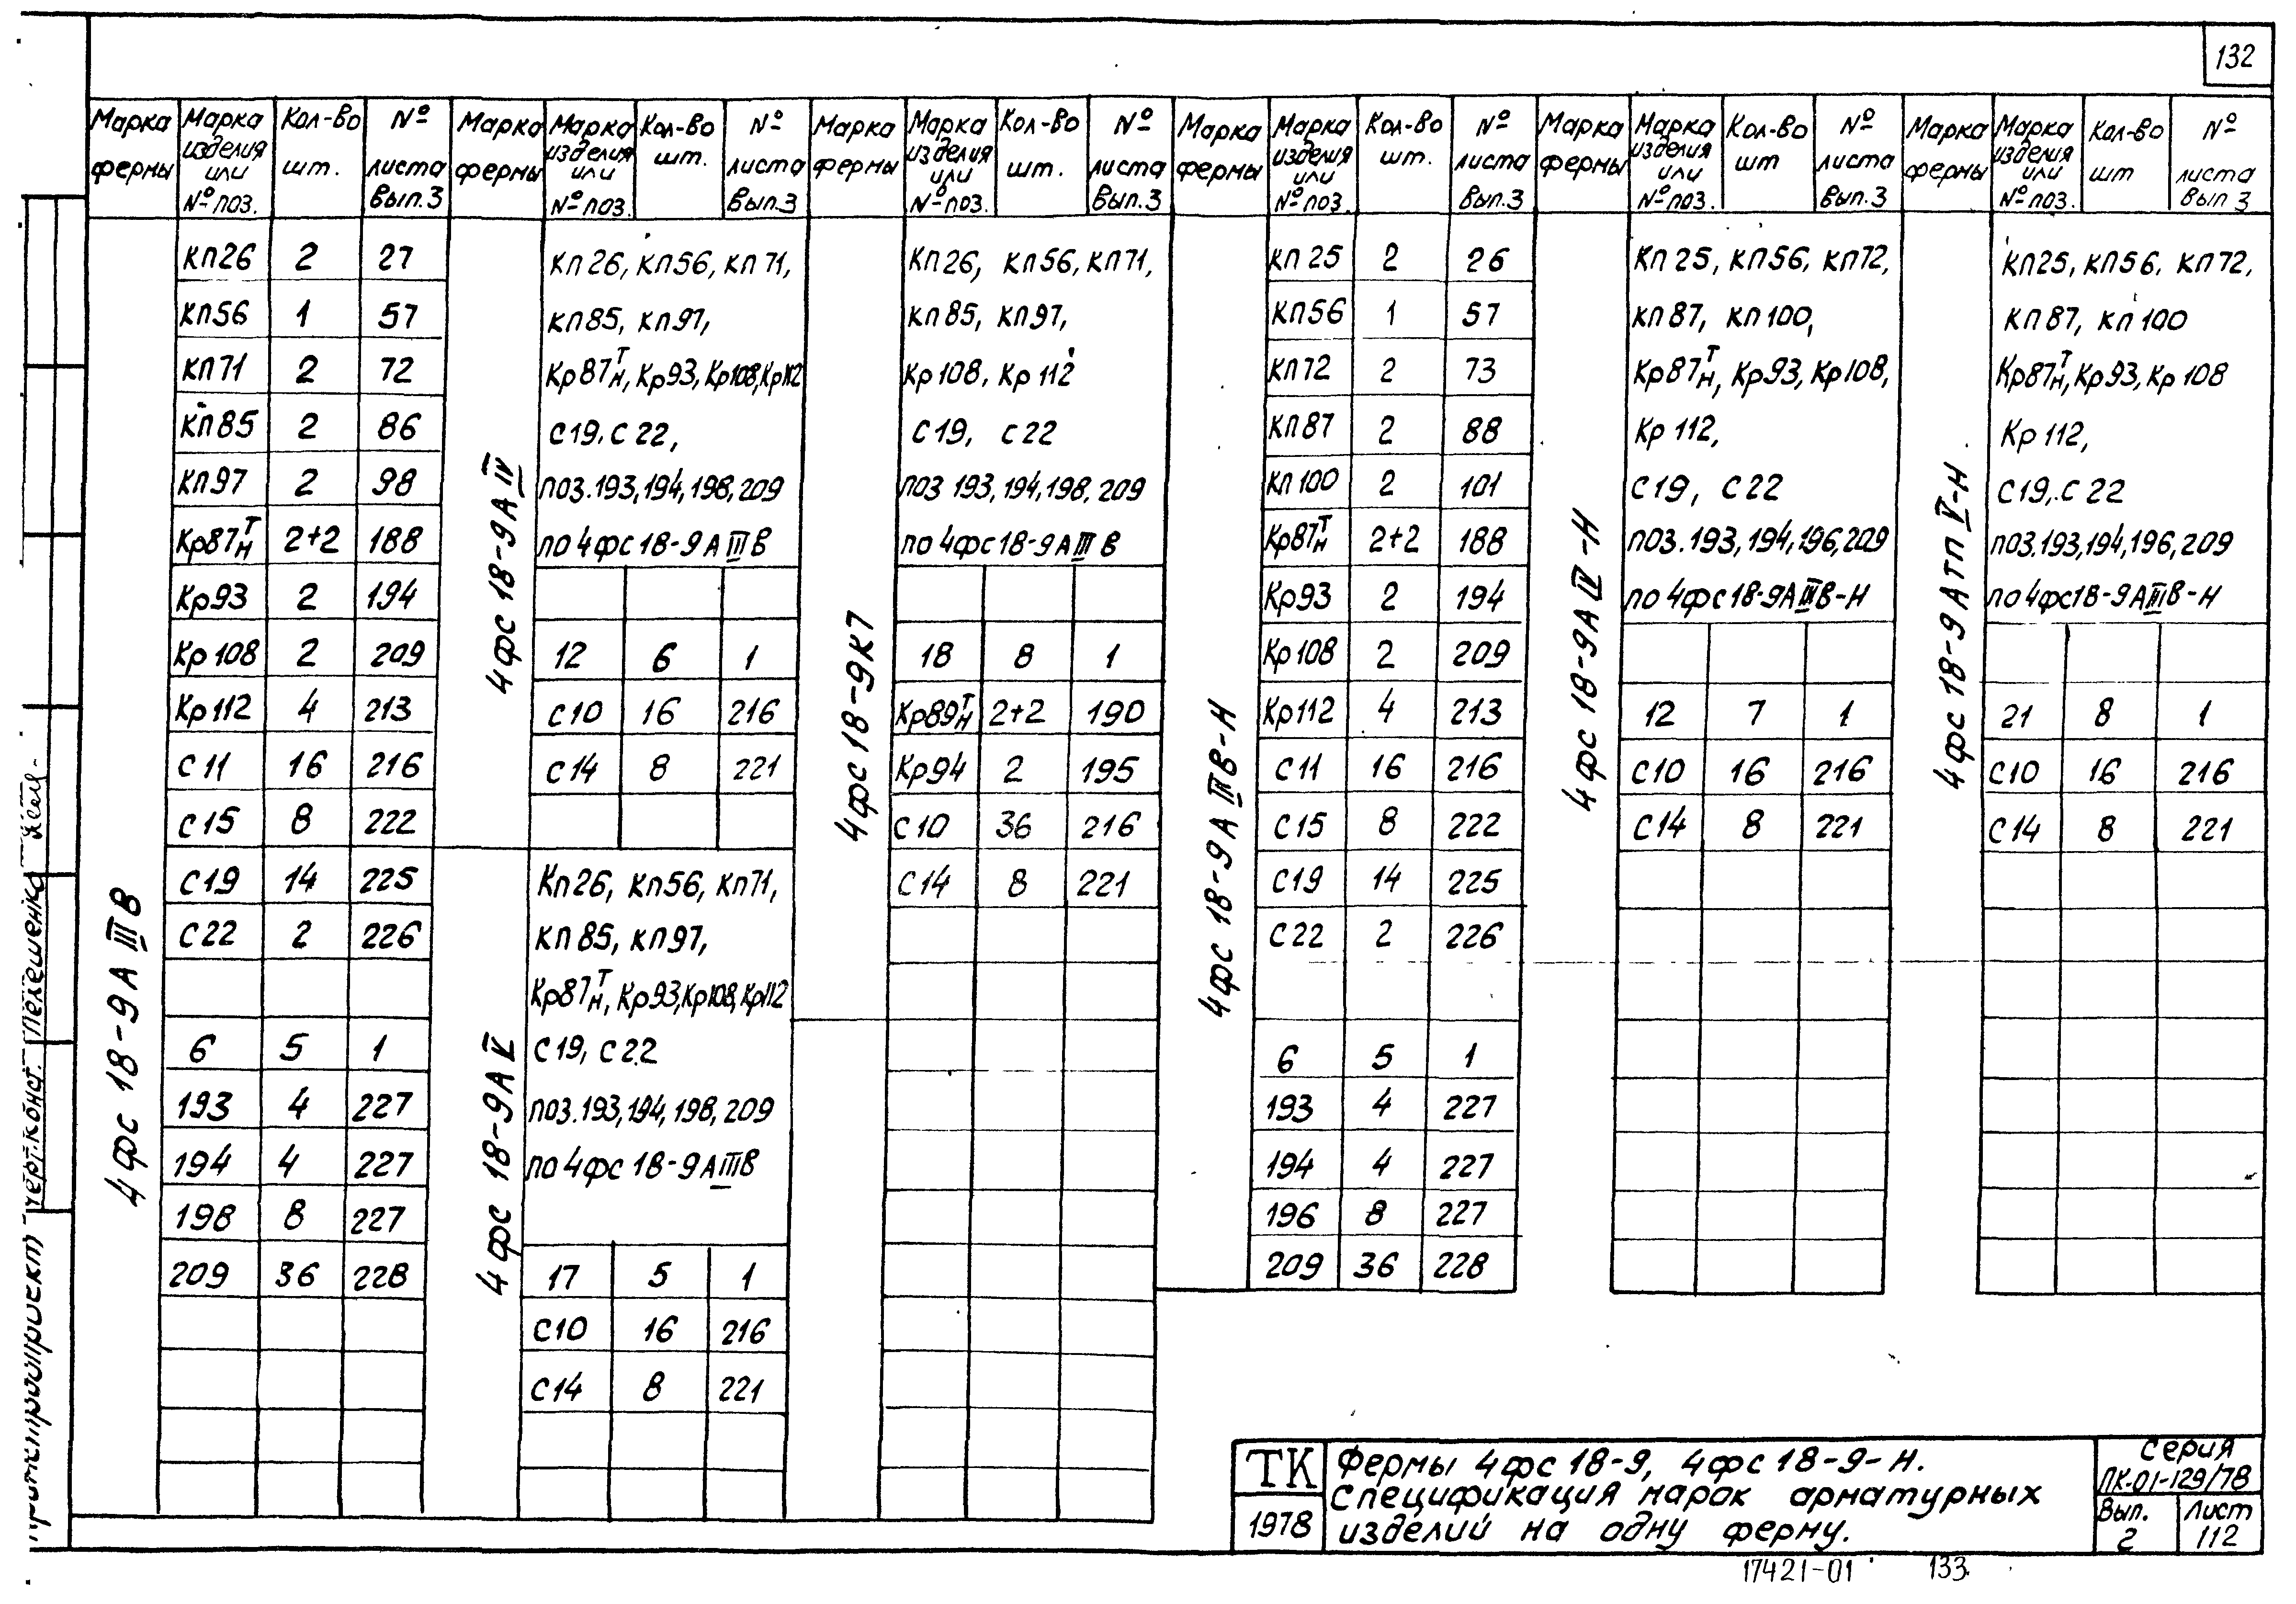 132
Марка фермы | Марка изделия или № поз. | Кол-во шт. | № листа Вып.3
4фс 18-9АIIIВ
КП26 2 27
КП56 1 57
КП71 2 72
КП85 2 86
КП97 2 98
Кр87ᵀн 2+2 188
Кр93 2 194
Кр108 2 209
Кр112 4 213
С11 16 216
С15 8 222
С19 14 225
С22 2 226
6 5 1
193 4 227
194 4 227
198 8 227
209 36 228
Марка фермы | Марка изделия или № поз. | Кол-во шт. | № листа Вып.3
4фс 18-9АIV
КП26, КП56, КП71,
КП85, КП97,
Кр87ᵀн, Кр93, Кр108, Кр112
С19, С22,
поз.193,194,198,209
по 4фс18-9АIIIВ
12 6 1
С10 16 216
С14 8 221
4фс 18-9АV
Кп26, Кп56, Кп71,
КП85, КП97,
Кр87ᵀн, Кр93, Кр108, Кр112
С19, С22
поз.193,194,198,209
по 4фс 18-9АIIIВ
17 5 1
С10 16 216
С14 8 221
Марка фермы | Марка изделия или № поз. | Кол-во шт. | № листа Вып.3
4фс 18-9К7
КП26, КП56, КП71,
КП85, КП97,
Кр108, Кр112
С19, С22
поз 193,194,198,209
по 4фс18-9АIIIВ
18 8 1
Кр89ᵀн 2+2 190
Кр94 2 195
С10 36 216
С14 8 221
Марка фермы | Марка изделия или № поз. | Кол-во шт. | № листа Вып.3
4фс 18-9АIIIВ-Н
КП25 2 26
КП56 1 57
КП72 2 73
КП87 2 88
КП100 2 101
Кр87ᵀн 2+2 188
Кр93 2 194
Кр108 2 209
Кр112 4 213
С11 16 216
С15 8 222
С19 14 225
С22 2 226
6 5 1
193 4 227
194 4 227
196 8 227
209 36 228
Марка фермы | Марка изделия или № поз. | Кол-во шт | № листа Вып.3
4фс 18-9АIV-Н
КП25, КП56, КП72,
КП87, КП100,
Кр87ᵀн, Кр93, Кр108,
Кр112,
С19, С22
поз.193,194,196,209
по 4фс18-9АIIIВ-Н
12 7 1
С10 16 216
С14 8 221
Марка фермы | Марка изделия или № поз. | Кол-во шт | № листа Вып 3
4фс 18-9АтпV-Н
КП25, КП56, КП72,
КП87, КП100
Кр87ᵀн, Кр93, Кр108
Кр112,
С19, С22
поз.193,194,196,209
по 4фс18-9АIIIВ-Н
21 8 1
С10 16 216
С14 8 221
ТК
1978
Фермы 4фс18-9, 4фс18-9-Н.
Спецификация марок арматурных
изделий на одну ферму.
Серия
ПК-01-129/78
Вып. 2
Лист 112
17421-01 133
черт.конст.